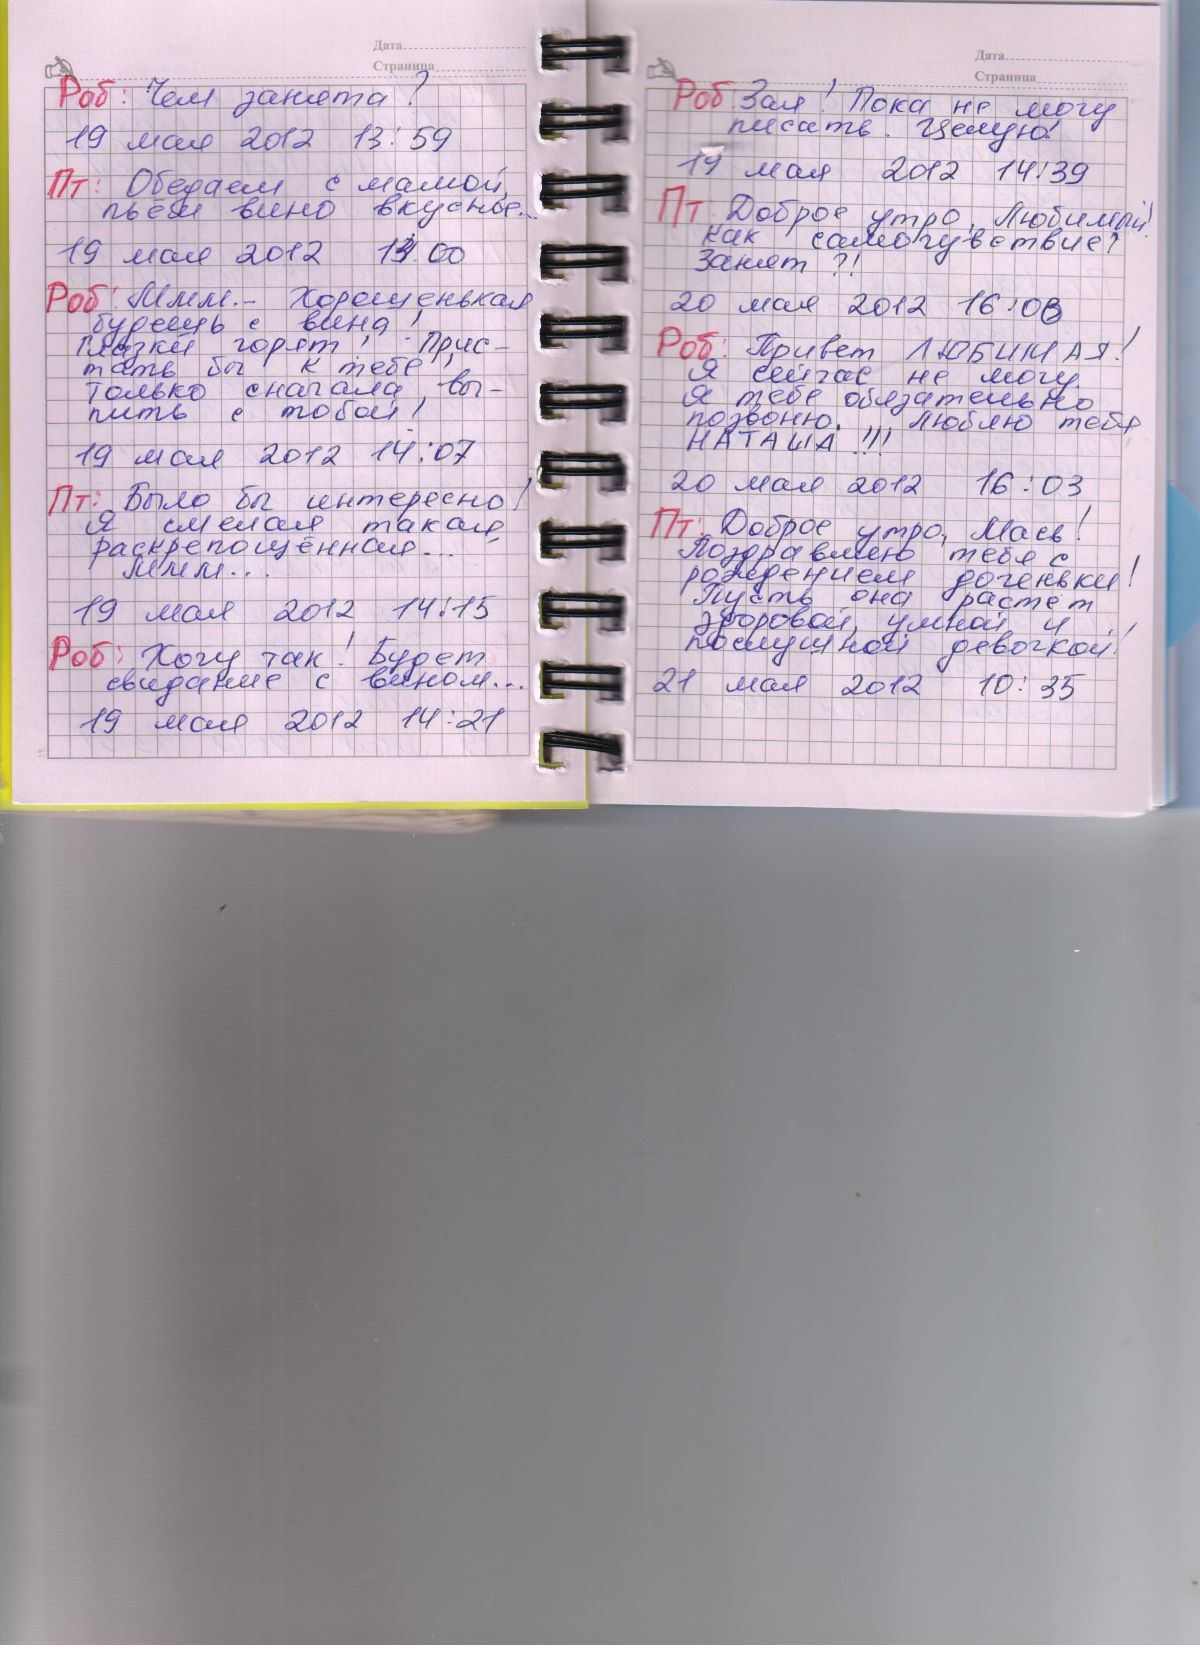 Дата
Страница
Роб: Чем занята?
19 мая 2012 13:59
Пт: Обедаем с мамой,
пьём вино вкусное...
19 мая 2012 14.00
Роб: Ммм.- Хорошенькая
будешь с вина!
Глазки горят! Прис-
тать бы к тебе!
только сначала вы-
пить с тобой!
19 мая 2012 14:07
Пт: Было бы интересно!
Я смелая такая,
раскрепощённая...
Ммм...
19 мая 2012 14:15
Роб: Хочу так! Будет
свидание с вином...
19 мая 2012 14:21
Дата
Страница
Роб Зая! Пока не могу
писать. Целую!
19 мая 2012 14:39
Пт Доброе утро, Любимый!
как самочувствие?
Занят?!
20 мая 2012 16:03
Роб: Привет ЛЮБИМАЯ!
Я сейчас не могу.
Я тебе обязательно
позвоню. Люблю тебя,
НАТАША!!!
20 мая 2012 16:03
Пт: Доброе утро, Мась!
Поздравляю тебя с
рождением доченьки!
Пусть она растёт
здоровой, умной и
послушной девочкой!
21 мая 2012 10:35